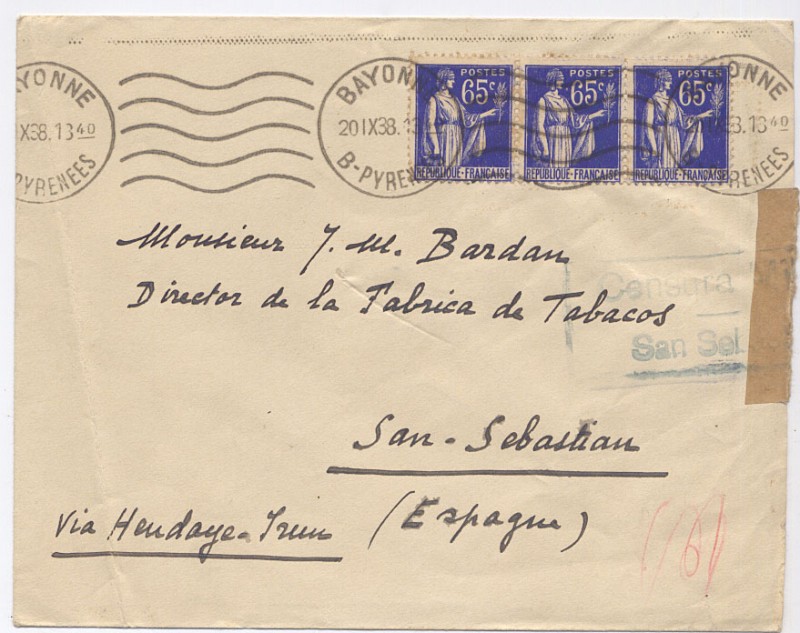 BAYONNE
20 IX 38. 13 40
B-PYRENEES
POSTES
65c
REPUBLIQUE-FRANÇAISE
POSTES
65c
REPUBLIQUE-FRANÇAISE
POSTES
65c
REPUBLIQUE-FRANÇAISE
Monsieur J. M. Bardan
Director de la Fabrica de Tabacos
Censura
San Se
San-Sebastian
Via Hendaye-Irun (Espagne)